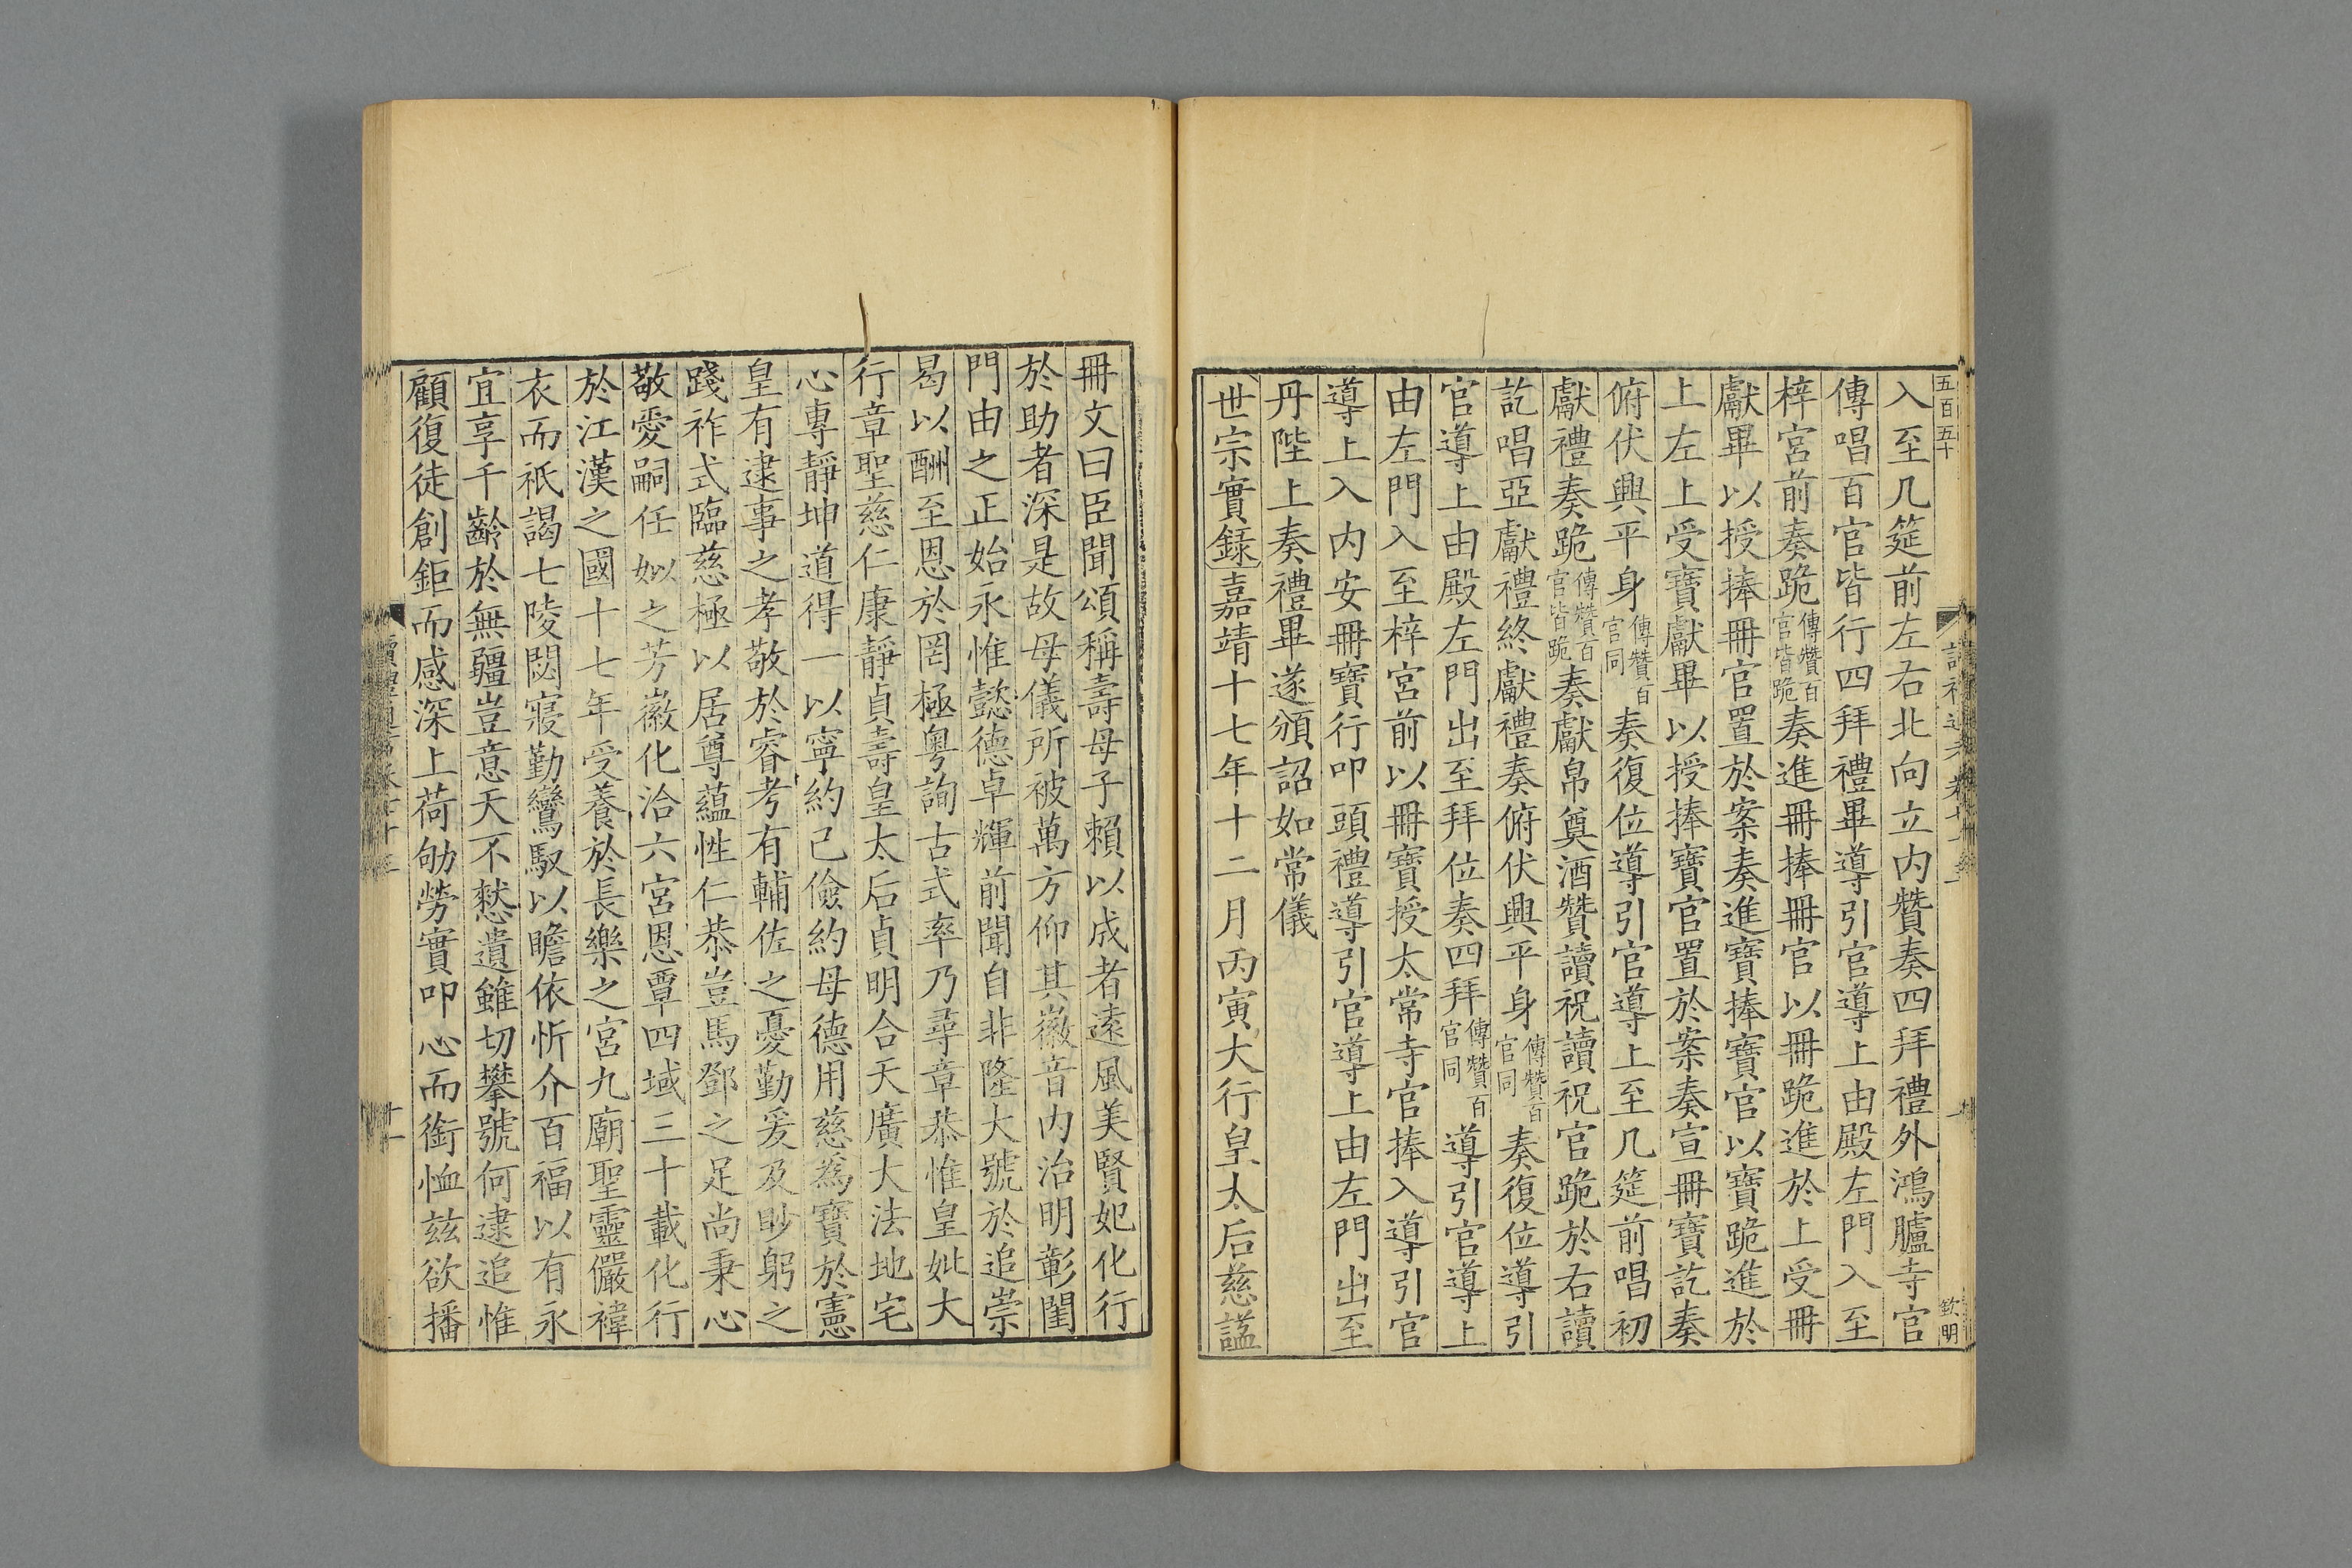 五百五十
欽明
入至几筵前左右北向立内贊奏四拜禮外鴻臚寺官
傳唱百官皆行四拜禮畢導引官導上由殿左門入至
梓宮前奏跪傳贊百官皆跪奏進冊捧冊官以冊跪進於上受冊
獻畢以授捧冊官置於案奏進寶捧寶官以寶跪進於
上左上受寶獻畢以授捧寶官置於案奏宣冊寶訖奏
俯伏興平身傳贊百官同奏復位導引官導上至几筵前唱初
獻禮奏跪傳贊百官皆跪奏獻帛奠酒贊讀祝讀祝官跪於右讀
訖唱亞獻禮終獻禮奏俯伏興平身傳贊百官同奏復位導引
官導上由殿左門出至拜位奏四拜傳贊百官同導引官導上
由左門入至梓宮前以冊寶授太常寺官捧入導引官
導上入内安冊寶行叩頭禮導引官導上由左門出至
丹陛上奏禮畢遂頒詔如常儀
世宗實録嘉靖十七年十二月丙寅大行皇太后慈諡
冊文曰臣聞頌稱壽母子賴以成者遠風美賢妃化行
於助者深是故母儀所被萬方仰其徽音内治明彰閨
門由之正始永惟懿德卓輝前聞自非隆大號於追崇
曷以酬至恩於罔極粤詢古式率乃尋章恭惟皇妣大
行章聖慈仁康靜貞壽皇太后貞明合天廣大法地宅
心專靜坤道得一以寧約己儉約母德用慈為寶於憲
皇有逮事之孝敬於睿考有輔佐之憂勤爰及眇躬之
踐祚式臨慈極以居尊蘊性仁恭豈馬鄧之足尚秉心
敬愛嗣任姒之芳徽化洽六宮恩覃四域三十載化行
於江漢之國十七年受養於長樂之宮九廟聖靈儼褘
衣而祇謁七陵閟寢勤鸞馭以瞻依忻介百福以有永
宜享千齡於無疆豈意天不憖遺雖切攀號何逮追惟
顧復徒創鉅而感深上荷劬勞實叩心而銜恤茲欲播
十一